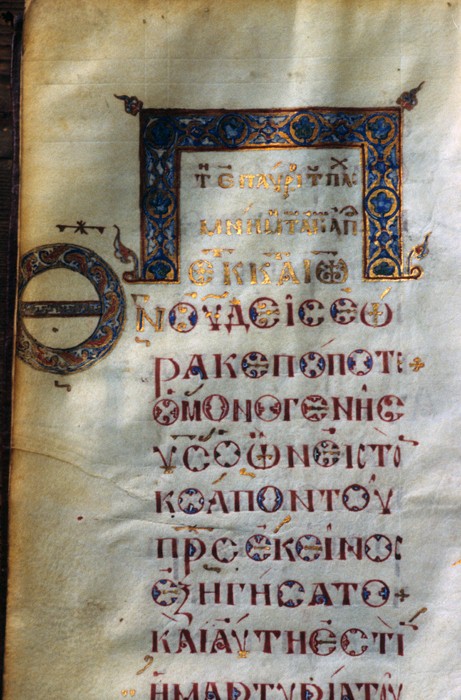 ΤΗ ΕΠΑΥΡΙ Τ
ΕΚ Κ ΑΙΩ
ΘΝ ΟΥΔΕΙϹ ΕΩ
ΡΑΚΕ ΠΟΠΟΤΕ
Ο ΜΟΝΟΓΕΝΗϹ
ΥϹ Ο ΩΝ ΕΙϹ ΤΟ
ΚΟΛΠΟΝ ΤΟΥ
ΠΡϹ ΕΚΕΙΝΟϹ
ΕΞΗΓΗϹΑΤΟ +
ΚΑΙ ΑΥΤΗ ΕϹΤΙ
Η ΜΑΡΤΥΡΙΑ ΤΟΥ